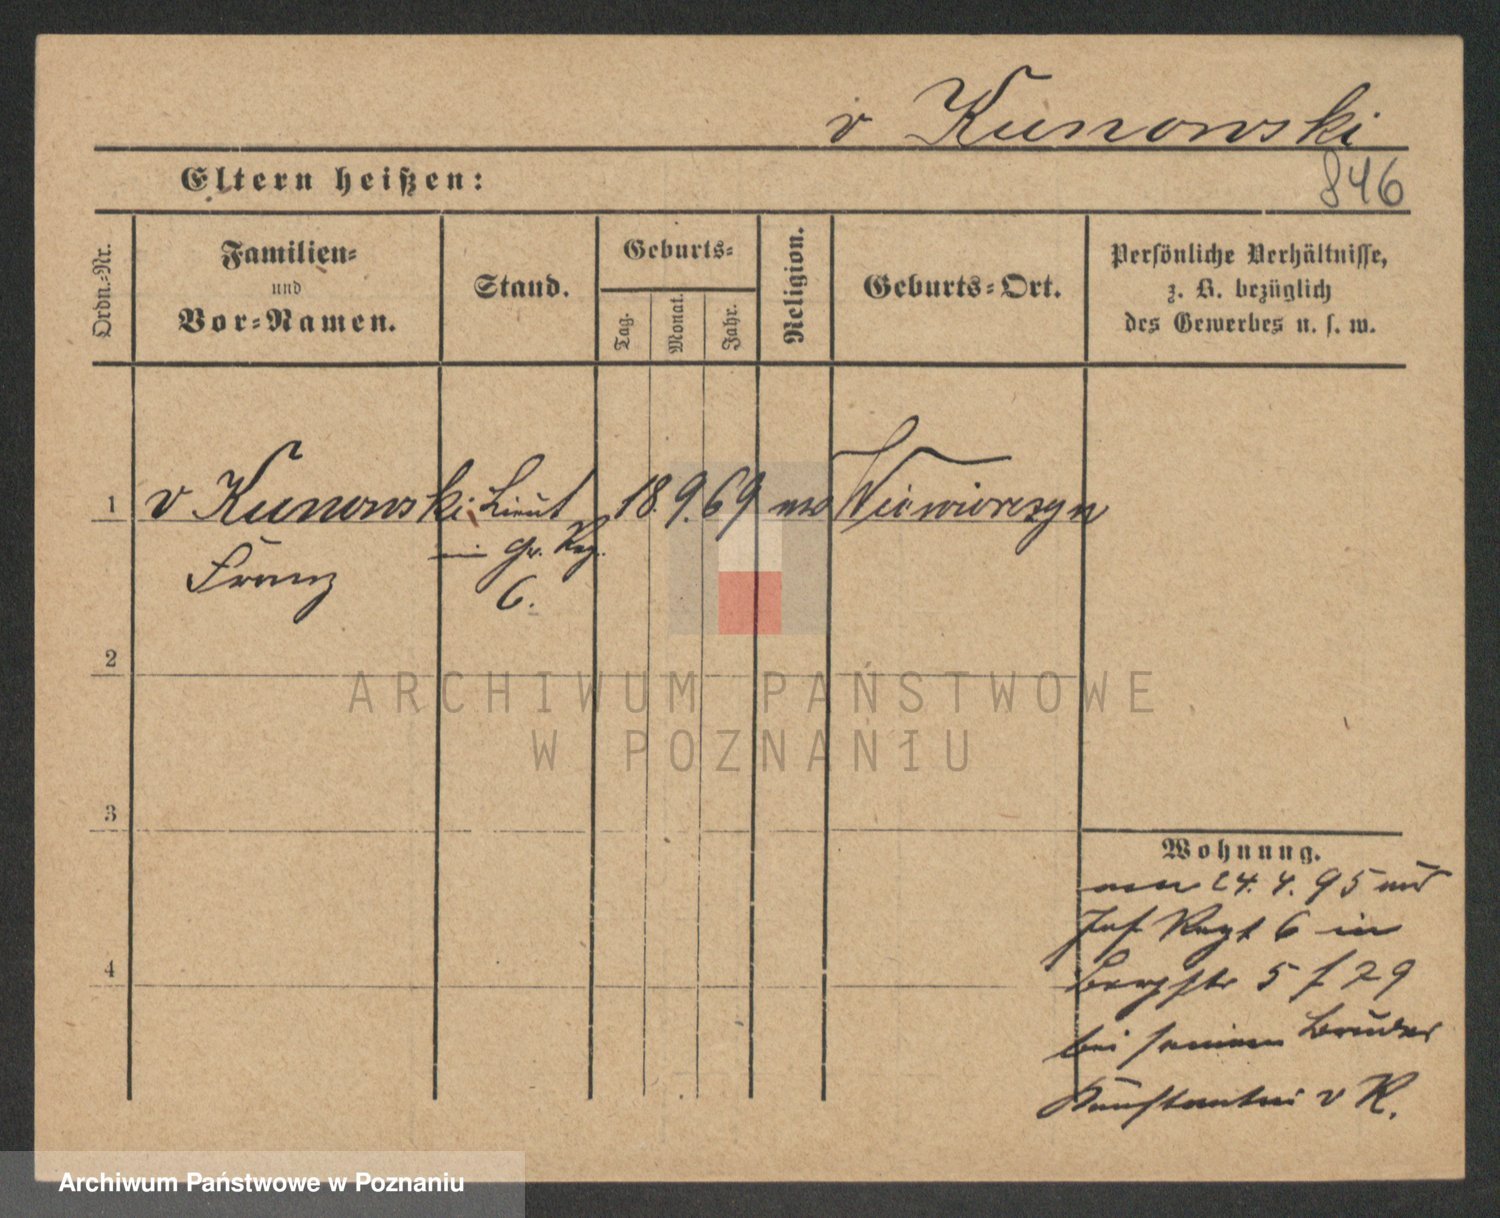 v Kunowski
846
Eltern heißen:
Ordn.-Nr.
Familien-
und
Vor-Namen.
Stand.
Geburts-
Tag.
Monat.
Jahr.
Religion.
Geburts-Ort.
Persönliche Verhältnisse,
z. B. bezüglich
des Gewerbes u. s. w.
1 v Kunowski Lieut 18. 9. 69 Wiewiorczyn
Franz
im Gr. Reg.
6.
2
3
4
ARCHIWUM PAŃSTWOWE
W POZNANIU
Wohnung.
24. 4. 95
Inf Regt 6 in
Bergstr 5 f 29
bei seinem Bruder
Konstantin v K.
Archiwum Państwowe w Poznaniu